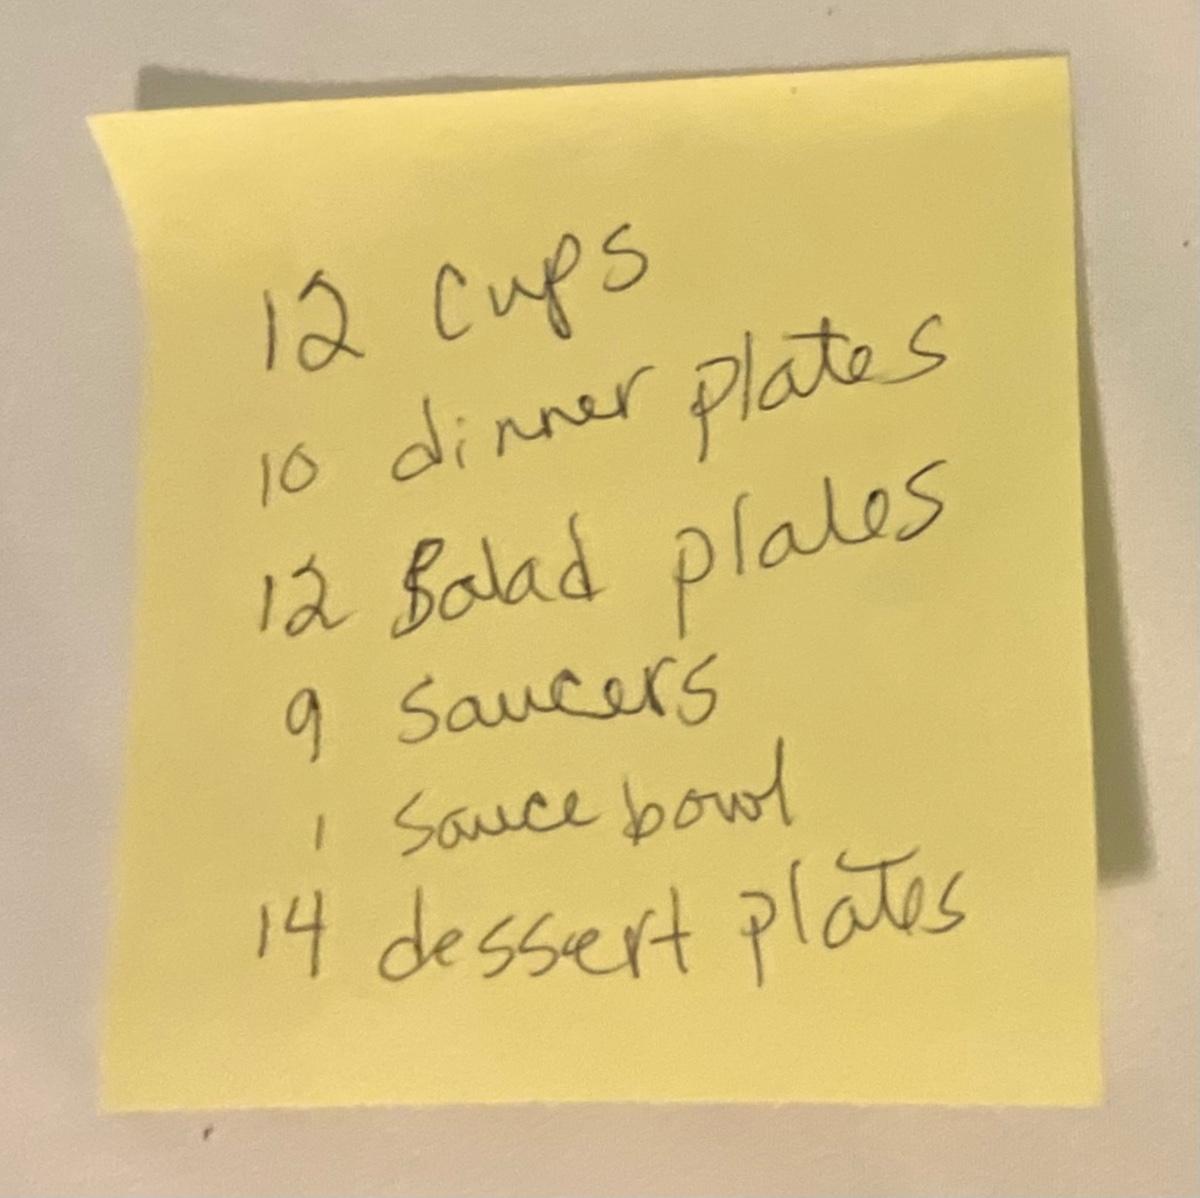 12 Cups
10 dinner plates
12 Salad plates
9 saucers
1 sauce bowl
14 dessert plates